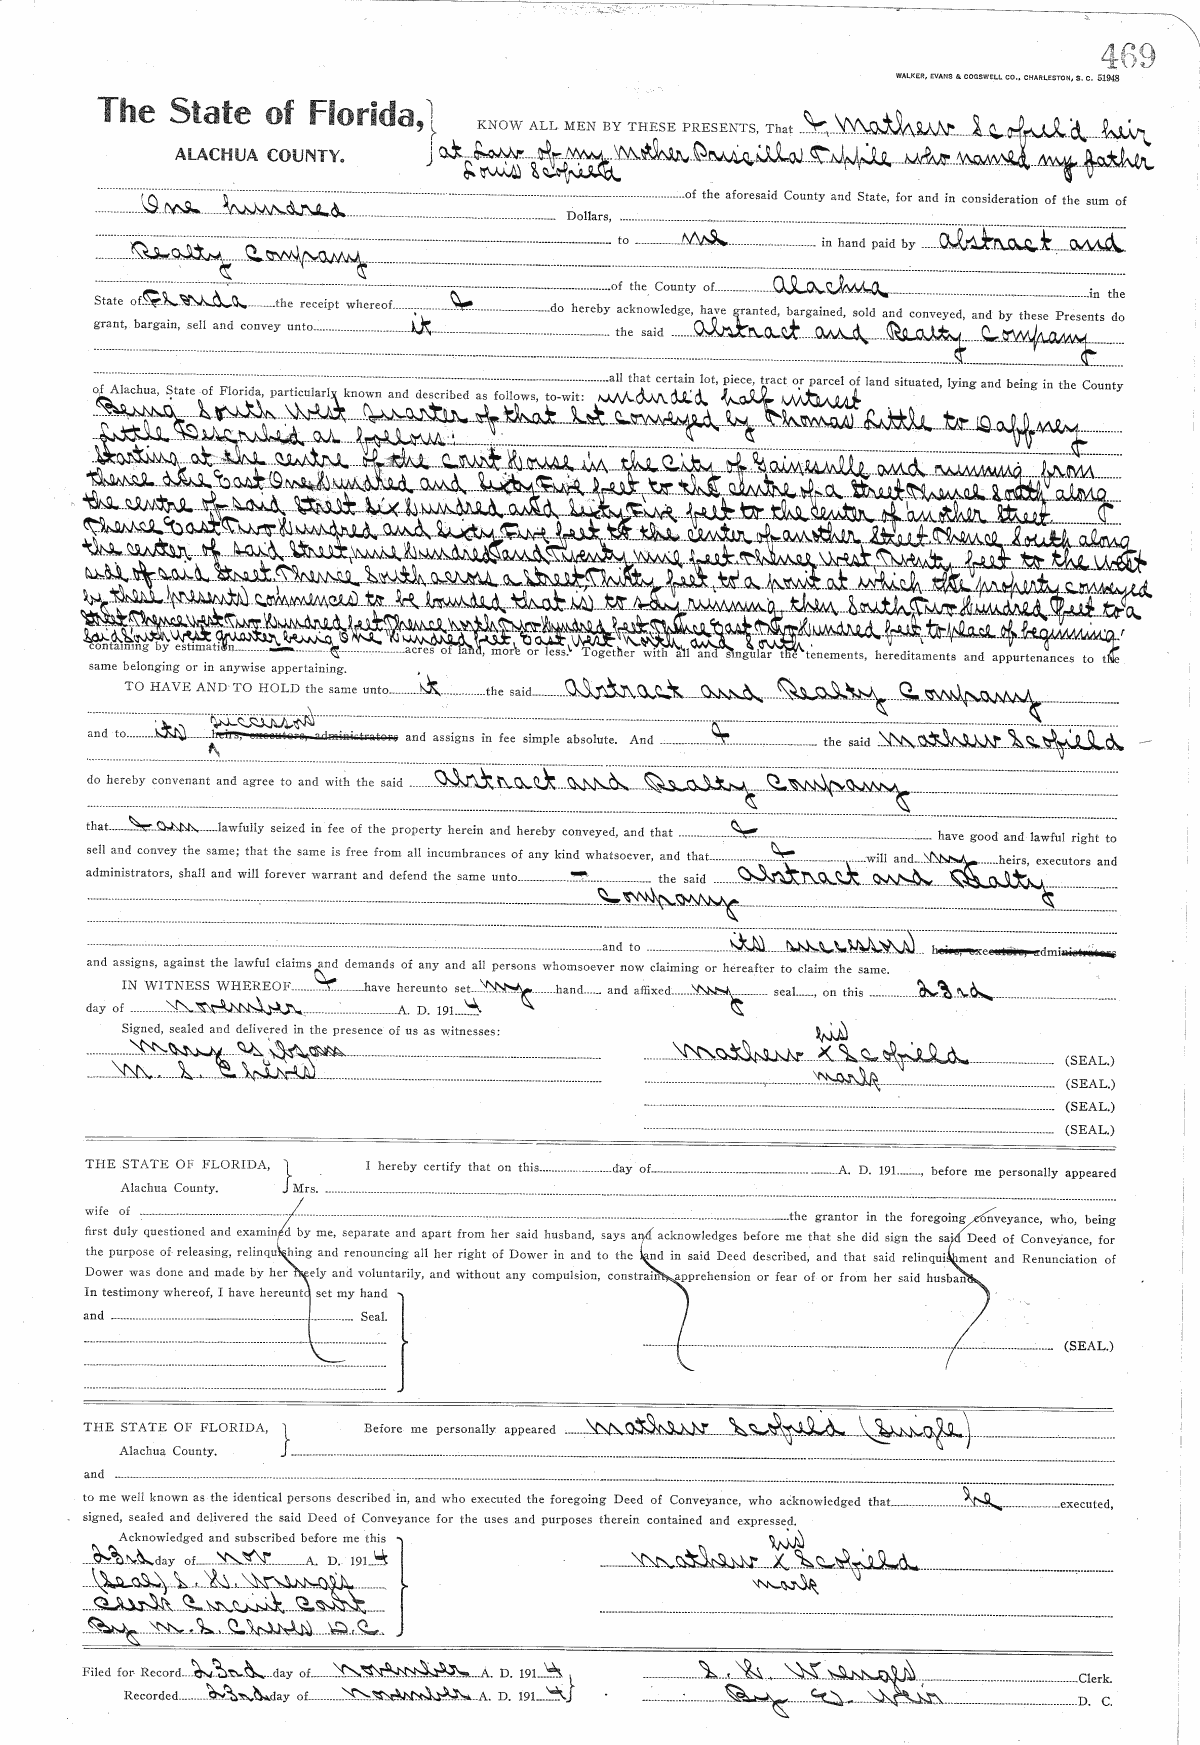 469
WALKER, EVANS & COGSWELL CO., CHARLESTON, S. C. 51948
The State of Florida,
ALACHUA COUNTY.
KNOW ALL MEN BY THESE PRESENTS, That I, Mathew Scofield heir
at Law of my Mother Priscilla who named my father
Louis Scofield
of the aforesaid County and State, for and in consideration of the sum of
One hundred Dollars,
to me in hand paid by Abstract and
Realty Company
of the County of Alachua in the
State of Florida the receipt whereof I do hereby acknowledge, have granted, bargained, sold and conveyed, and by these Presents do
grant, bargain, sell and convey unto it the said Abstract and Realty Company
all that certain lot, piece, tract or parcel of land situated, lying and being in the County
of Alachua, State of Florida, particularly known and described as follows, to-wit: undivided half interest
Being South West Quarter of that lot conveyed by Thomas Little to Daffney
Little Described as follows:
Starting at the centre of the Court House in the City of Gainesville and running from
thence due East One Hundred and Sixty Five feet to the centre of a Street Thence South along
the centre of said Street Six hundred and Sixty Five feet to the center of another Street
Thence East Two Hundred and Sixty Five feet to the center of another Street Thence South along
the center of said Street nine hundred and Twenty nine feet Thence West Twenty feet to the West
side of said Street Thence South across a Street Thirty feet to a point at which the property conveyed
by these presents commences to be bounded that is to say running then South Two Hundred feet to a
Street Thence West Two Hundred feet Thence north Two Hundred feet Thence East Two Hundred feet to place of beginning.
Said South West quarter being One Hundred feet, East West North and South.
containing by estimation — acres of land, more or less. Together with all and singular the tenements, hereditaments and appurtenances to the
same belonging or in anywise appertaining.
TO HAVE AND TO HOLD the same unto it the said Abstract and Realty Company
successors
and to its heirs, executors, administrators and assigns in fee simple absolute. And I the said Mathew Scofield
do hereby convenant and agree to and with the said Abstract and Realty Company
that I am lawfully seized in fee of the property herein and hereby conveyed, and that I have good and lawful right to
sell and convey the same; that the same is free from all incumbrances of any kind whatsoever, and that I will and my heirs, executors and
administrators, shall and will forever warrant and defend the same unto — the said Abstract and Realty
Company
and to its successors heirs, executors, administrators
and assigns, against the lawful claims and demands of any and all persons whomsoever now claiming or hereafter to claim the same.
IN WITNESS WHEREOF I have hereunto set my hand and affixed my seal, on this 23rd
day of November A. D. 1914
Signed, sealed and delivered in the presence of us as witnesses:
his
Mary Gibson Mathew X Scofield (SEAL.)
M. S. Cheves mark (SEAL.)
(SEAL.)
(SEAL.)
THE STATE OF FLORIDA, I hereby certify that on this day of A. D. 191 , before me personally appeared
Alachua County. Mrs.
wife of the grantor in the foregoing conveyance, who, being
first duly questioned and examined by me, separate and apart from her said husband, says and acknowledges before me that she did sign the said Deed of Conveyance, for
the purpose of releasing, relinquishing and renouncing all her right of Dower in and to the land in said Deed described, and that said relinquishment and Renunciation of
Dower was done and made by her freely and voluntarily, and without any compulsion, constraint, apprehension or fear of or from her said husband.
In testimony whereof, I have hereunto set my hand
and Seal.
(SEAL.)
THE STATE OF FLORIDA, Before me personally appeared Mathew Scofield (Single)
Alachua County.
and
to me well known as the identical persons described in, and who executed the foregoing Deed of Conveyance, who acknowledged that he executed,
signed, sealed and delivered the said Deed of Conveyance for the uses and purposes therein contained and expressed.
Acknowledged and subscribed before me this his
23rd day of Nov A. D. 1914 Mathew X Scofield
(Seal) S. H. Wienges mark
Clerk Circuit Court
By M. S. Cheves D.C.
Filed for Record 23rd day of November A. D. 1914 S. H. Wienges Clerk.
Recorded 23rd day of November A. D. 1914 By E. Weir D. C.